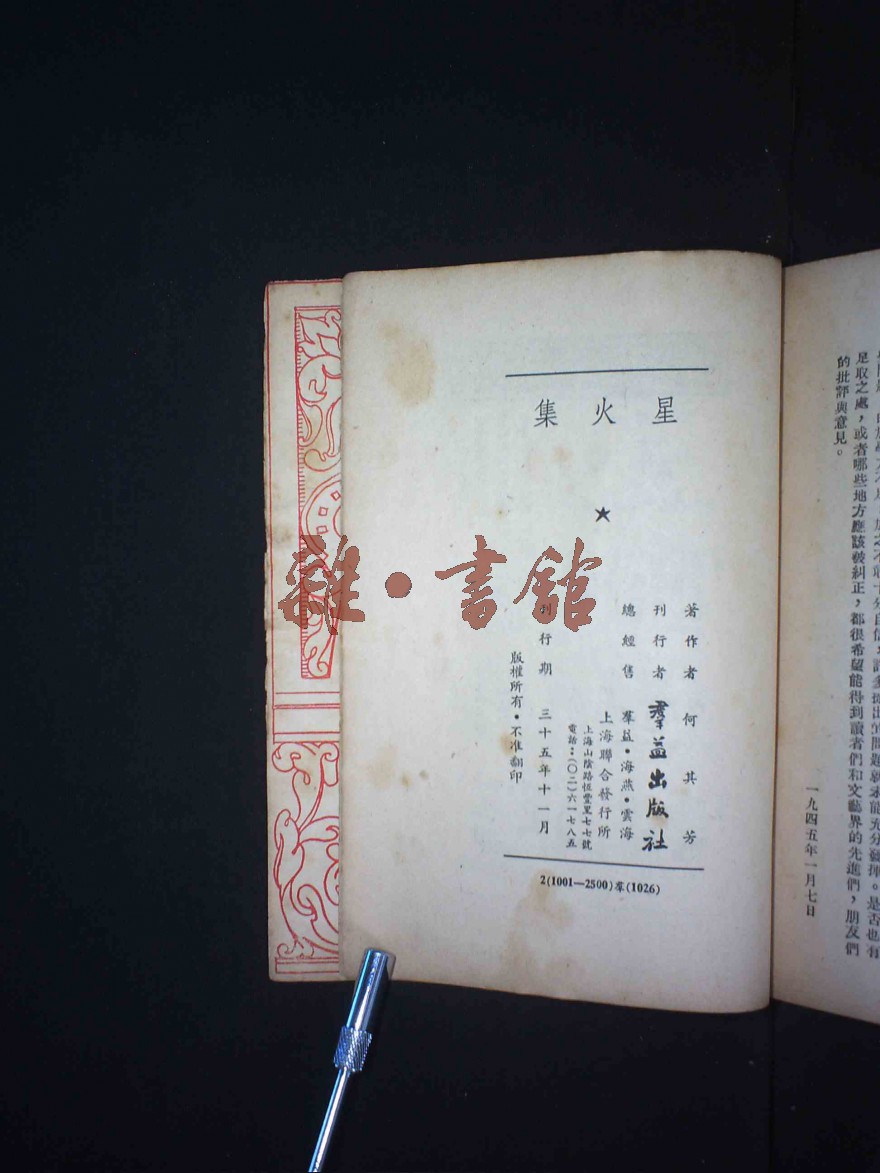 星火集
★
著作者 何其芳
刊行者 羣益出版社
總經售 羣益·海燕·雲海
上海聯合發行所
上海山陰路恆豐里七七號
電話：(〇二)六一七八五
刊行期 三十五年十一月
版權所有·不准翻印
2(1001—2500)羣(1026)
雜·書館
足取之處，或者哪些地方應該被糾正，都很希望能得到讀者們和文藝界的先進們，朋友們
的批評與意見。
一九四五年一月七日